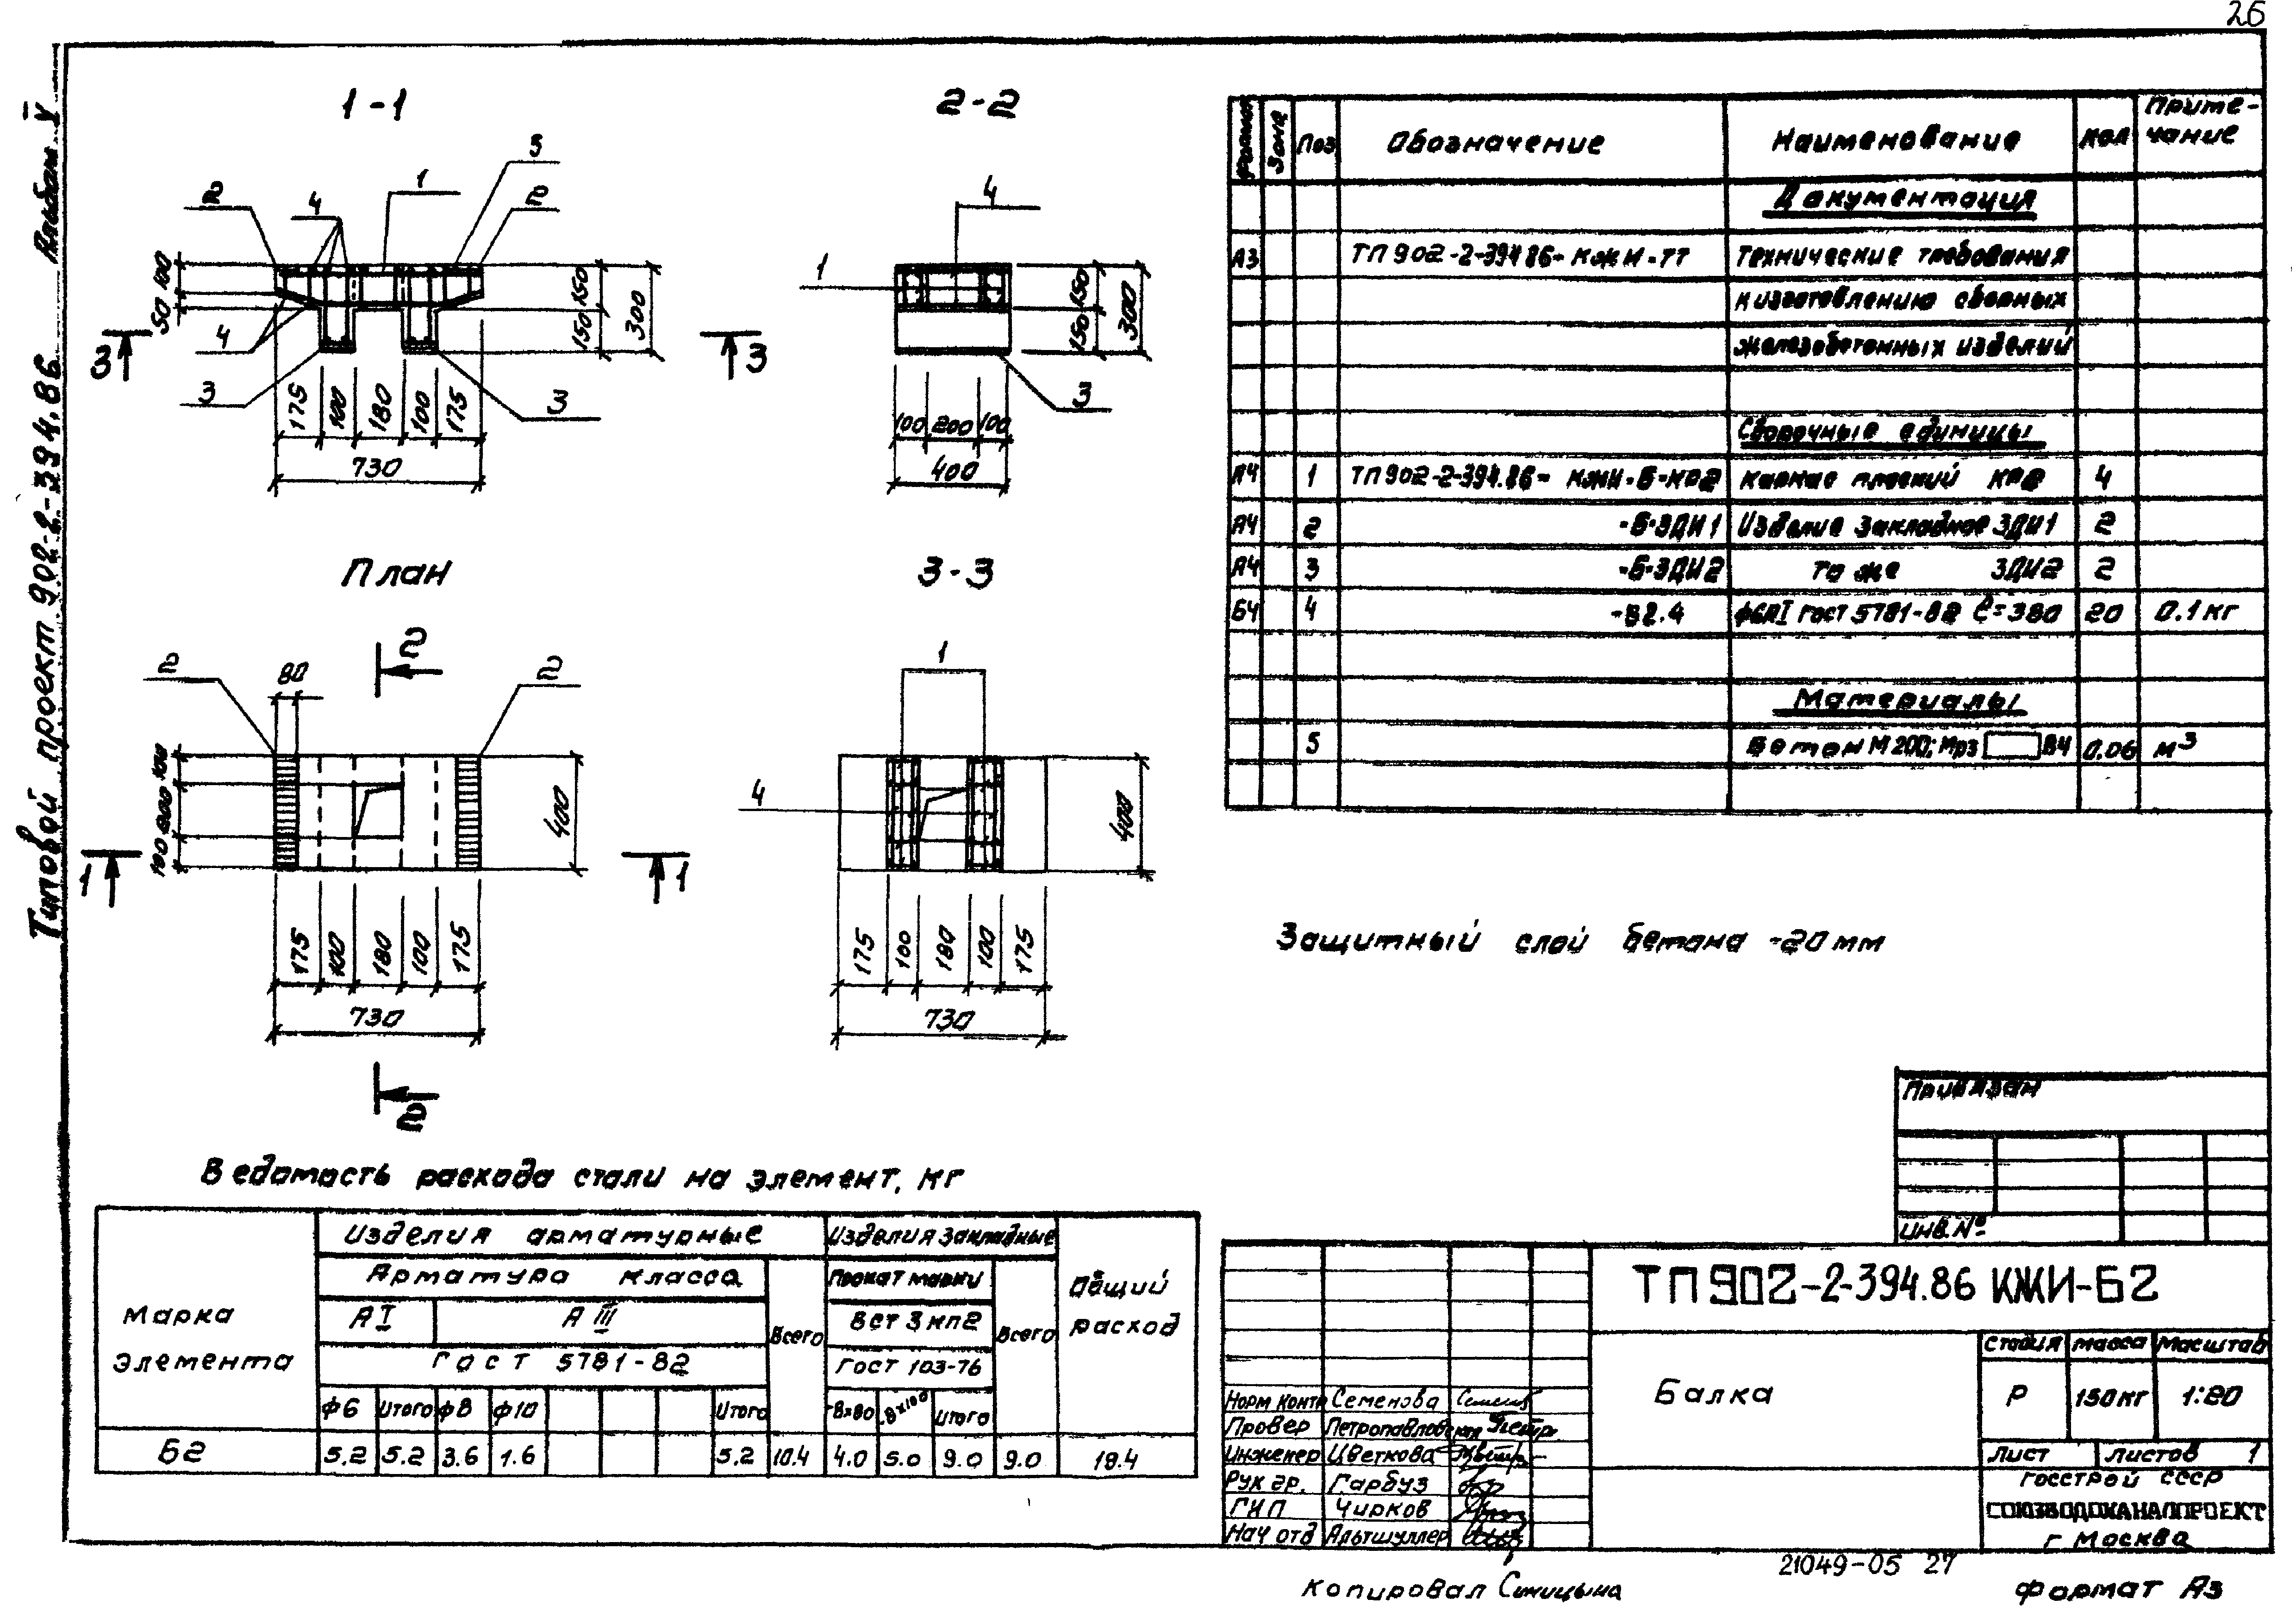 26
Альбом V
Типовой проект 902-2-394.86
1-1
2 4 1 5 2
100
50
4
3 3
3 3
150
150
300
175 100 180 100 175
730
2-2
4
1
150
150
300
3
100 200 100
400
План
2
2 80 2
100 200 100
400
1 1
175 100 180 100 175
730
2
3-3
1
4
400
175 100 180 100 175
730
Формат Зона Поз Обозначение Наименование Кол Приме-
чание
Документация
А3 ТП 902-2-394.86-КЖИ-ТТ Технические требования
к изготовлению сборных
железобетонных изделий
Сборочные единицы
А4 1 ТП 902-2-394.86- КЖИ-Б-КР2 Каркас плоский КР2 4
А4 2 -Б-ЗДИ1 Изделие закладное ЗДИ1 2
А4 3 -Б-ЗДИ2 То же ЗДИ2 2
Б4 4 -Б2.4 ф6АI ГОСТ 5781-82 ℓ=380 20 0.1кг
Материалы
5 Бетон М200; Мрз В4 0.06 м3
Защитный слой бетона -20мм
Ведомость расхода стали на элемент, кг
Марка элемента Изделия арматурные Изделия закладные Общий расход
Арматура класса Всего Прокат марки Всего
А I А III ВСт 3 кп2
ГОСТ 5781-82 ГОСТ 103-76
ф6 Итого ф8 ф10 Итого -8х80 -8х100 Итого
Б2 5.2 5.2 3.6 1.6 5.2 10.4 4.0 5.0 9.0 9.0 19.4
Привязан
Инв. №
ТП 902-2-394.86 КЖИ-Б2
Балка
Стадия Масса Масштаб
Р 150кг 1:20
Лист Листов 1
Госстрой СССР
СОЮЗВОДОКАНАЛПРОЕКТ
г Москва
Норм контр Семенова
Провер Петропавловская
Инженер Цветкова
Рук гр. Гарбуз
ГИП Чирков
Нач отд Альтшуллер
21049-05 27
Копировал Синицына
Формат А3